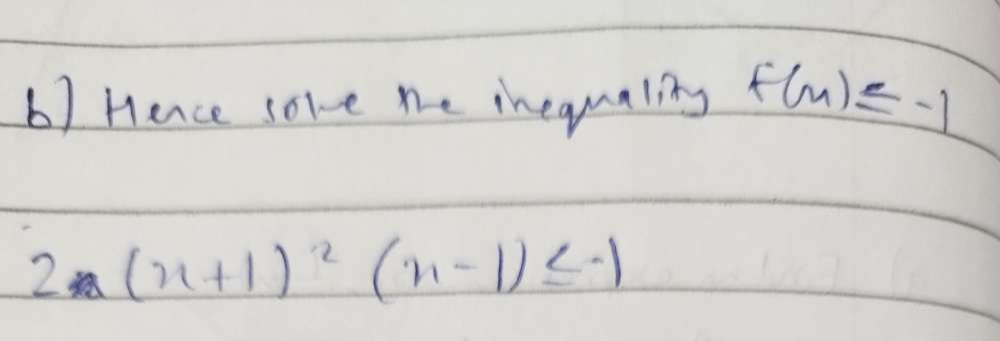 b) Hence solve the inequality f(x) ≤ -1
2 (x+1)² (x-1) ≤ -1